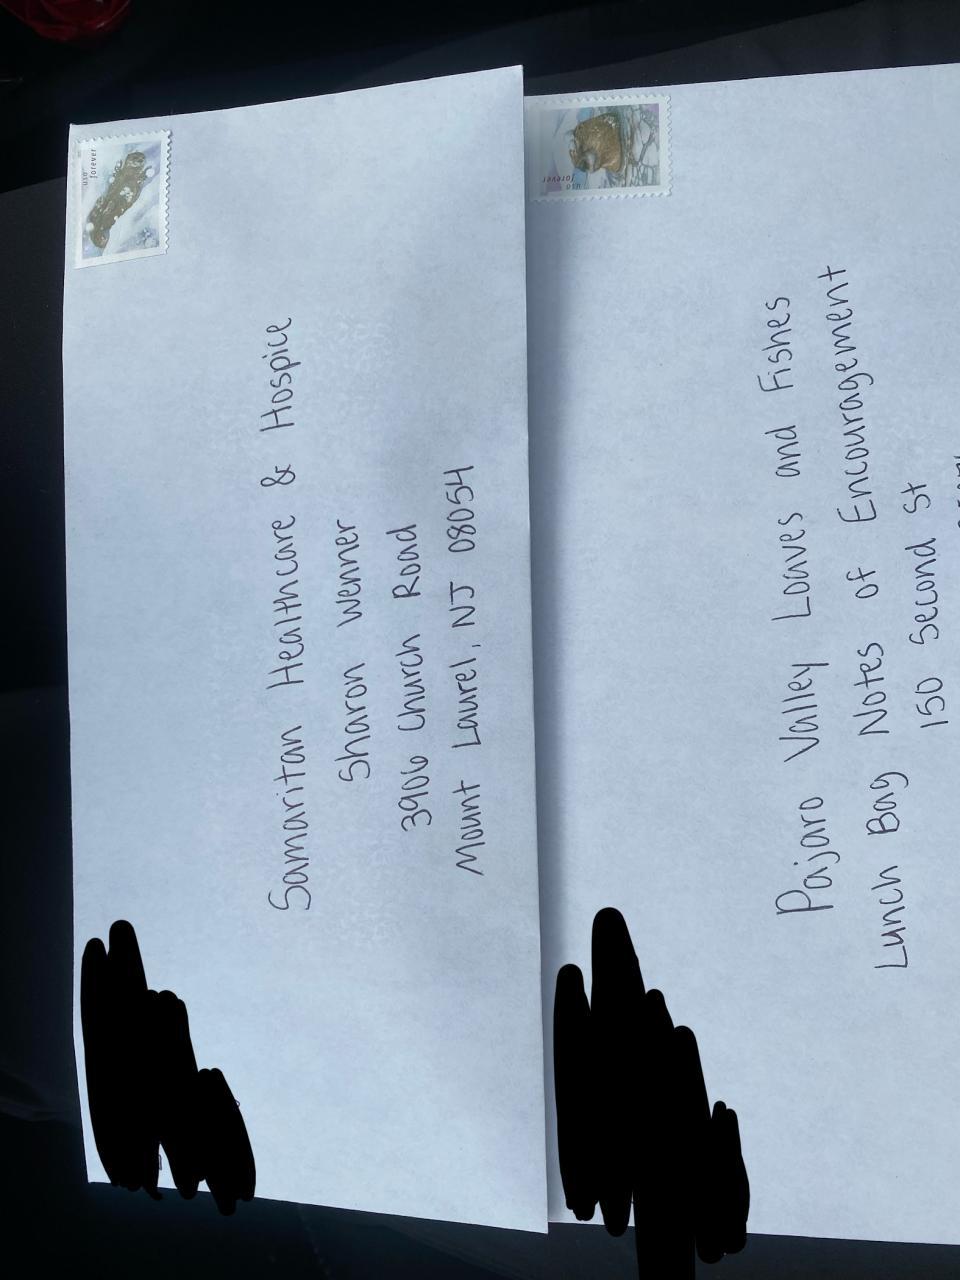 USA
forever
Samaritan Healthcare & Hospice
Sharon Wenner
3906 Church Road
Mount Laurel, NJ 08054
USA
forever
Pajaro Valley Loaves and Fishes
Lunch Bag Notes of Encouragement
150 Second St